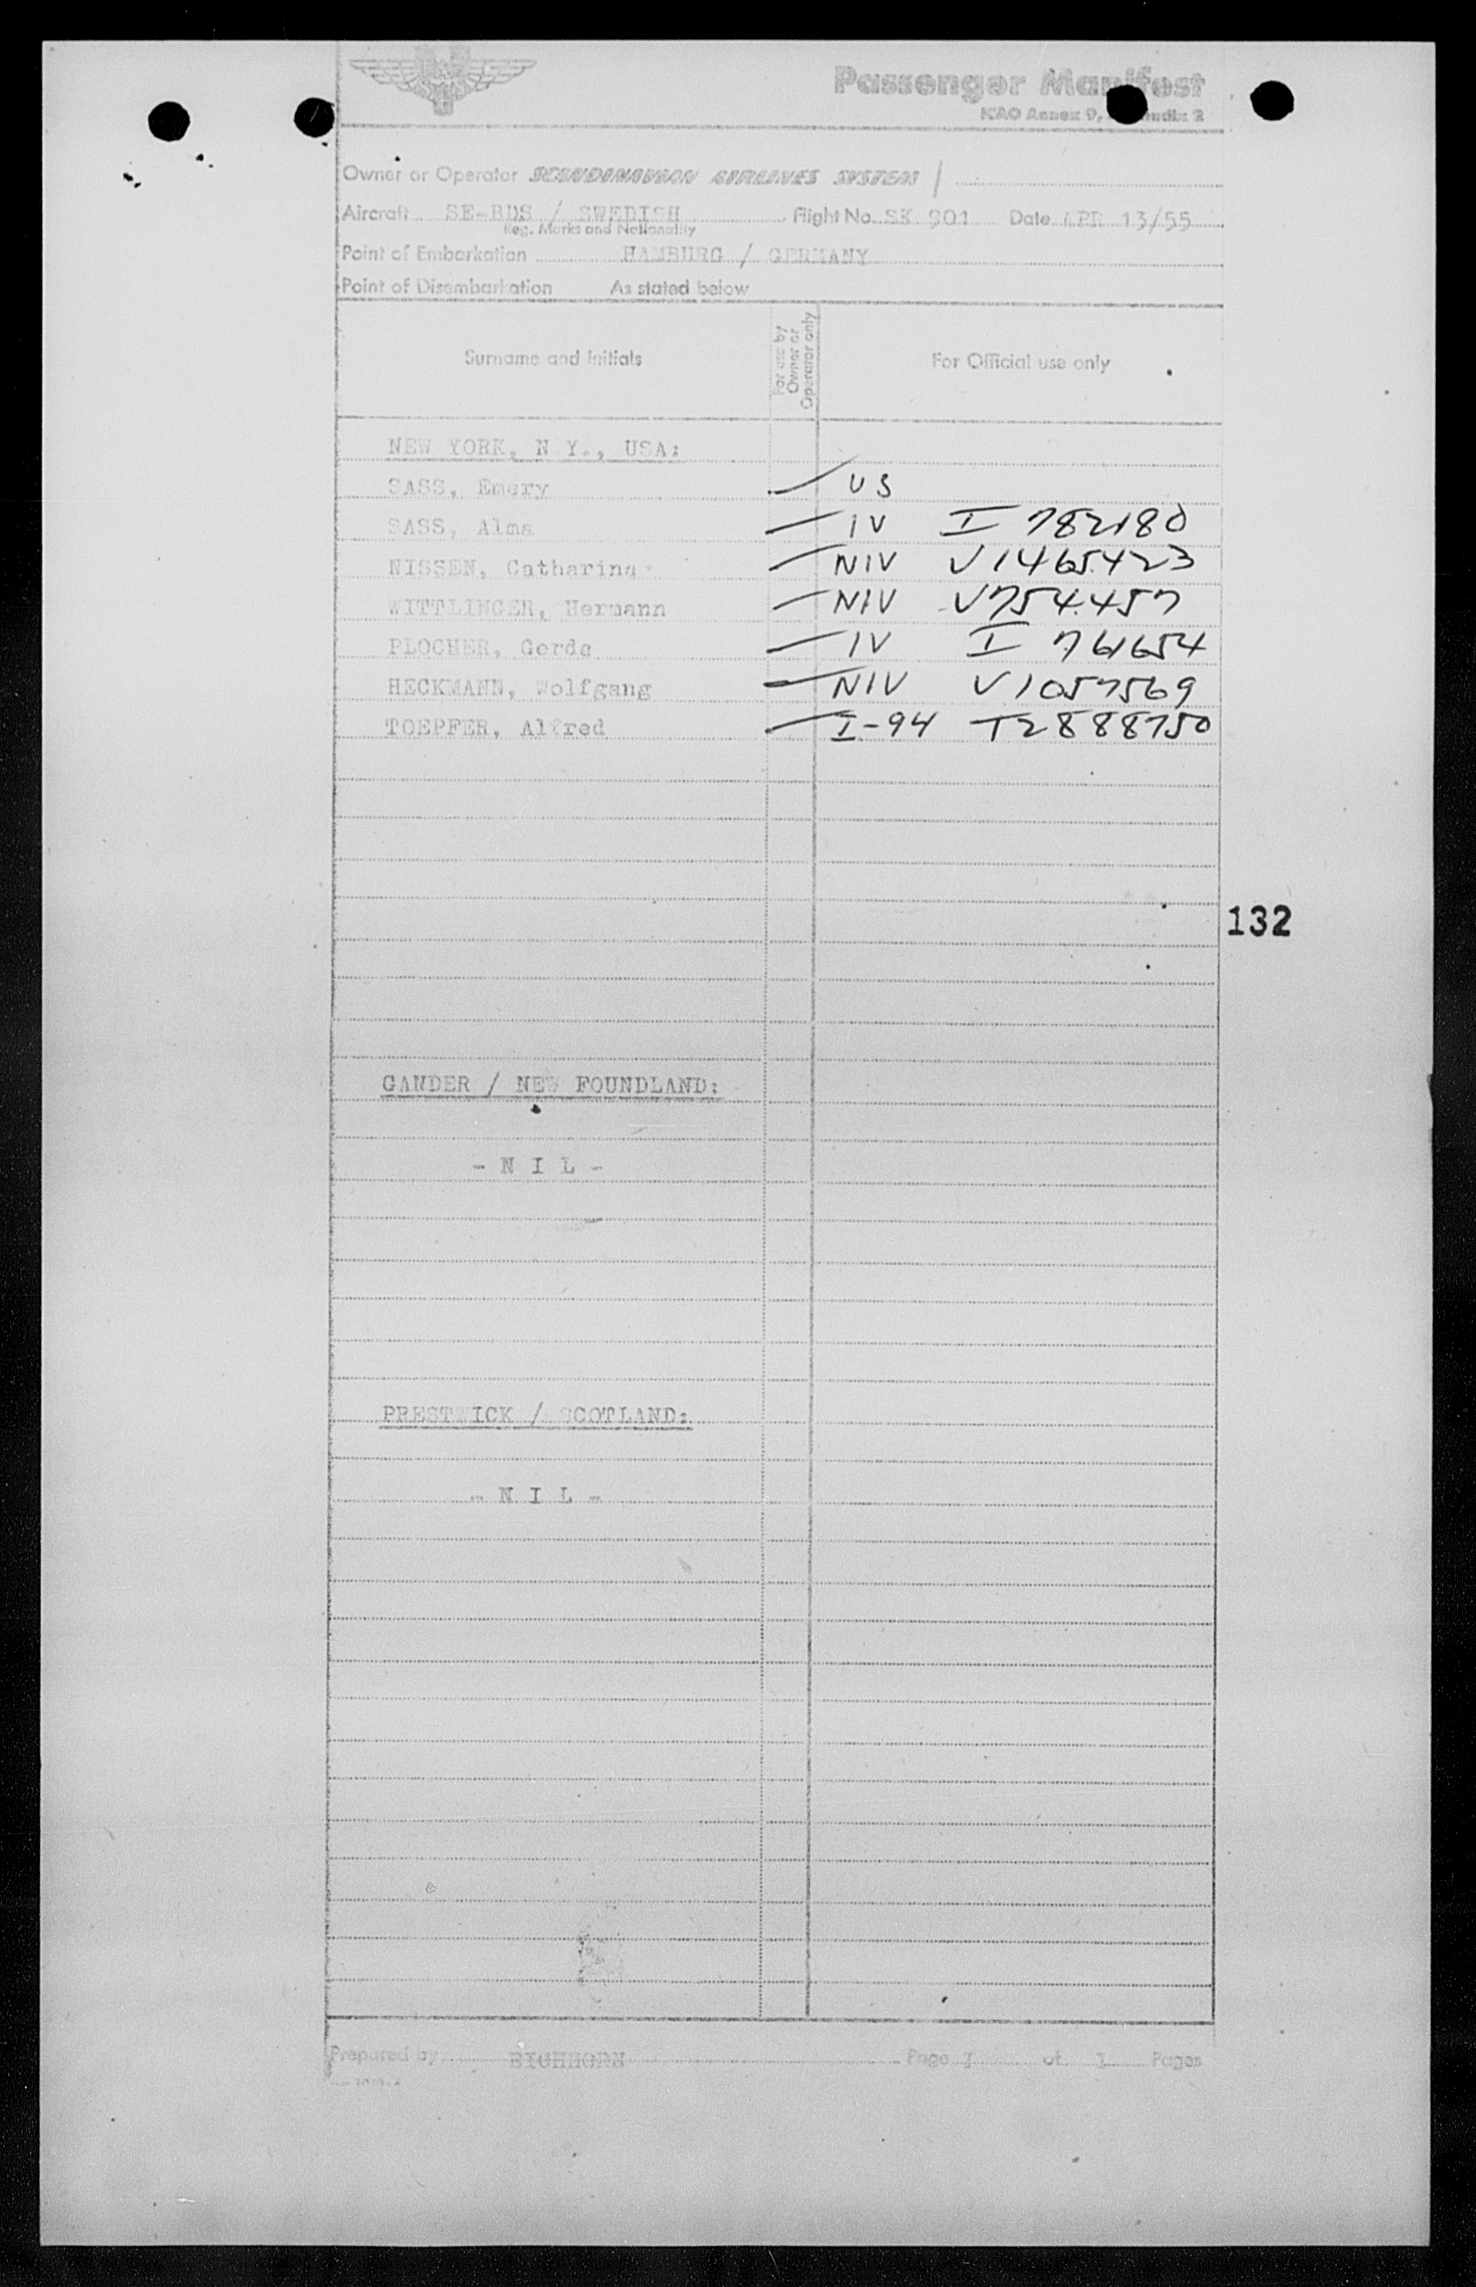 Passenger Manifest
ICAO Annex 9, Appendix 2
Owner or Operator SCANDINAVIAN AIRLINES SYSTEM /
Aircraft SE-BDS / SWEDISH Flight No. SK 901 Date APR 13/55
Reg. Marks and Nationality
Point of Embarkation HAMBURG / GERMANY
Point of Disembarkation As stated below
Surname and Initials For use by Owner or Operator only For Official use only
NEW YORK, N.Y., USA:
SASS, Emery US
SASS, Alma IV I 782180
NISSEN, Catharina NIV V1465423
WITTLINGER, Hermann NIV V754457
PLOCHER, Gerda IV I 761654
HECKMANN, Wolfgang NIV V1057569
TOEPFER, Alfred I-94 T2888750
132
GANDER / NEW FOUNDLAND:
- N I L -
PRESTWICK / SCOTLAND:
- N I L -
Prepared by EICHHORN Page 1 of 1 Pages